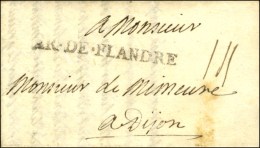 A Monsieur
AR·DE·FLANDRE
Monsieur de Mimeure
a Dijon